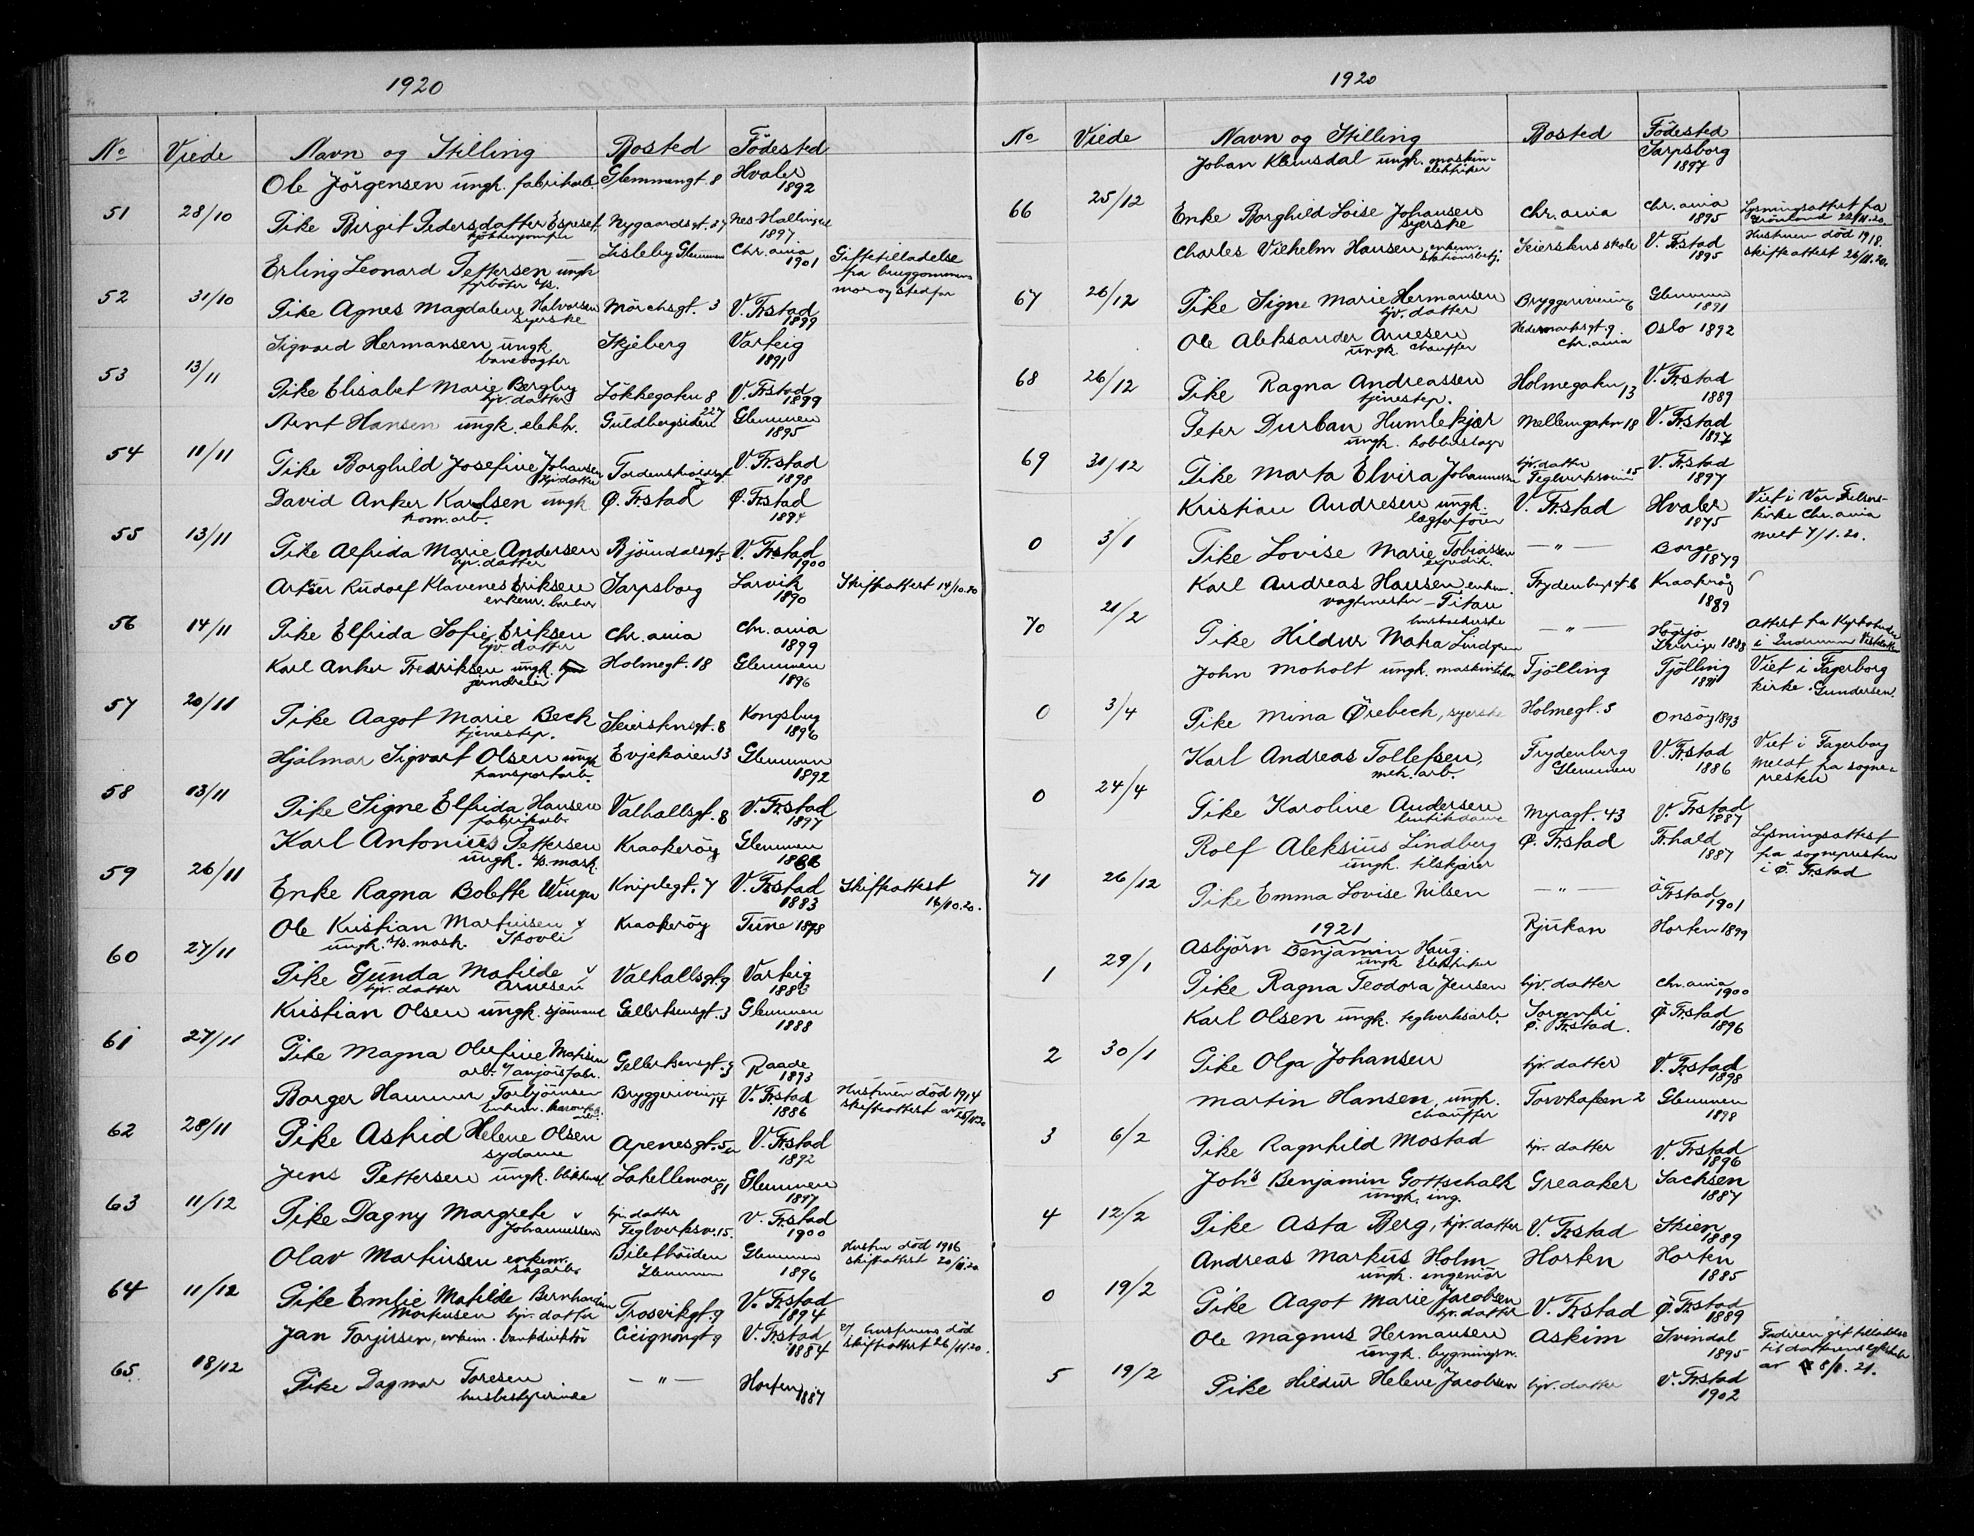 1920
No Viede Navn og Stilling Bosted Födested
Ole Jörgensen ungk. fabrikarb. Glemmengt. 8 Hvaler 1892
51 28/10 Pike Birgit Pedersdatter Espeset Nygaardsgt. 27 Nes-Hallingdal 1897
Erling Leonard Pettersen ungk. fyrböter Lisleby Glemmen Chr.ania 1901 Giftetilladelse
fra brudgommens
mor og stedfar
52 31/10 Pike Agnes Magdalene Halvorsen syerske Mörchsgt. 3 V. Fr.stad 1899
Sigvard Hermansen ungk. banevogter Skjeberg Varteig 1891
53 13/11 Pike Elisabet Marie Bergby hjv. datter Lökkegaten 8 V. Fr.stad 1899
Arnt Hansen ungk. elektr. Guldbergsiden 227 Glemmen 1895
54 11/11 Pike Borghild Josefine Johansen hjv. datter Tordenskioldsgt. V. Fr.stad 1898
David Anker Karlsen ungk. kom. arb. Ø. Fr.stad Ø. Fr.stad 1894
55 13/11 Pike Alfrida Marie Andersen hjv. datter Björndalsgt. 5 V. Fr.stad 1900
Artur Rudolf Klavenes Eriksen enkem. barber Sarpsborg Larvik 1890 Skifteattest 14/10.20
56 14/11 Pike Elfrida Sofie Eriksen hjv. datter Chr.ania Chr.ania 1899
Karl Anker Fredriksen ungk. jerndreier Holmegt. 18 Glemmen 1896
57 20/11 Pike Aagot Marie Bech tjenestep. Seierskrsgt. 8 Kongsberg 1896
Hjalmar Sigvart Olsen ungk. transportarb. Evjekaien 13 Glemmen 1892
58 13/11 Pike Signe Elfrida Hansen fabrikarb. Valhallsgt. 8 V. Fr.stad 1897
Karl Antonius Pettersen ungk. mask. Kraakeröy Glemmen
59 26/11 Enke Ragna Bolette Winger Kniplegt. 7 V. Fr.stad 1883 Skifteattest 16/10.20.
Ole Kristian Martinsen Skovli ungk. mask. Kraakeröy Tune 1878
60 27/11 Pike Gunda Matilde Arnesen hjv. datter Valhallsgt. 9 Varteig 1883
Kristian Olsen ungk. sjömand Gellertsensgt. 3 Glemmen 1888
61 27/11 Pike Magna Olufine Mathisen arb. v/ anjosfabr. Gellertsensgt. 3 Raade 1893
Borger Hammer Torbjörnsen Enkem. Bryggeriveien 14 V. Fr.stad 1886 Hustruen död 1914
skifteattest av 25/11.20
62 28/11 Pike Astrid Helene Olsen sydame Apenesgt. 5 V. Fr.stad 1892
Jens Pettersen ungk. Lahellemoen 81 Glemmen 1897
63 11/12 Pike Dagny Margrete Johannessen hjv. datter Teglverksv. 15. V. Fr.stad 1900
Olav Martinsen enkem. sagarb. Biletböiden Glemmen Glemmen 1896 Hustru död 1916
skifteattest 20/11.20
64 11/12 Pike Emlie Matilde Bernhardine Martinsen hjv. datter Trosvikgt. 9 V. Fr.stad 1894
Jan Torjussen, enkem. bankdirektör Cicignongt. 9 V. Fr.stad 1884 hustruens död
skifteattest 26/11.20.
65. 18/12 Pike Dagmar Toresen husbestyrerinde — " — Horten 1887

1920
No Viede Navn og Stilling Bosted Födested
Johan Klemsdal ungk. maskin-elektriker Sarpsborg 1897
66 25/12 Enke Borghild Loise Johansen syerske Chr.ania Chr.ania 1895 Lysningsattest fra
Grönland 22/11.20.
Charles Vilhelm Hansen, enkem. stationsbetj. Seierskrs skole V. Fr.stad 1895 Hustruen död 1918.
skifteattest 26/11.20.
67 26/12 Pike Signe Marie Hermansen hjv. datter Bryggeriveien 6 Glemmen 1891
Ole Aleksander Arnesen ungk. chauffør Hedemarksgt. 9. Chr.ania Oslo 1892
68 26/12 Pike Ragna Andreassen tjenestep. Holmegaten 13 V. Fr.stad 1889
Peter Durban Humlekjær ungk. kobberslager Mellemgaten 18 V. Fr.stad 1897
69 31/12 Pike Marta Elvira Johannessen hjv. datter Teglverksveien 15 V. Fr.stad 1897
Kristian Andresen ungk. lægterförer V. Fr.stad Hvaler 1875 Viet i Vor Frelsers-
kirke Chr.ania
melt 7/1.20.
0 3/1 Pike Lovise Marie Tobiassen expedit. — " — Borge 1879
Karl Andreas Hansen enkem. vagtmester - Titan Frydenbergst. 6 Kraakeröy 1889
70 21/2 Pike Hildur Maria Lindgren husholderske — " — Högsjö Sverige 1888 Attest fra Kyrkoherden
John Moholt ungk. maskintekn. Tjölling Tjölling 1891 Viet i Fagerborg
kirke. Gundersen.
0 3/4 Pike Mina Ørebech, syerske Holmegt. 5 Onsöy 1893
Karl Andreas Tollefsen, mek. arb. Frydenberg Glemmen V. Fr.stad 1886 Viet i Fagerborg
meldt fra sogne-
presten
0 24/4 Pike Karoline Andersen butikdame Myragt. 43 V. Fr.stad 1887
Rolf Aleksius Lindberg ungk. tilskjærer Ø. Fr.stad Fr.hald 1887 Lysningsattest
fra sognepresten
i Ø. Fr.stad
71 26/12 Pike Emma Lovise Nilsen — " — Ö Fr.stad 1901
1921
Asbjörn Benjamin Haug. ungk. Elektriker Rjukan Horten 1899
1 29/1 Pike Ragna Teodora Jensen hjv. datter Chr.ania 1900
Karl Olsen ungk. teglverksarb. Sorgenfri Ö. Fr.stad. Ø. Fr.stad 1896
2 30/1 Pike Olga Johansen hjv. datter V. Fr.stad 1898
Martin Hansen, ungk. chauffør Torvkassen 2 Glemmen 1898
3 6/2 Pike Ragnhild Mostad hjv. datter V. Fr.stad 1896
Johs Benjamin Gottschalk ungk. ing. Greaaker Sachsen 1887
4 12/2 Pike Asta Berg, hjv. datter V. Fr.stad Skien 1889
Andreas Markus Holm ungk. ingeniör Horten Horten 1885
0 19/2 Pike Aagot Marie Jacobsen hjv. datter V. Fr.stad Ø. Fr.stad 1889
Ole Magnus Hermansen ungk. bygningsm. Askim Svindal 1895 Faderen git tilladelse
til datterens
av 8/2. 21.
5 19/2 Pike Hildur Helene Jacobsen hjv. datter V. Fr.stad 1902